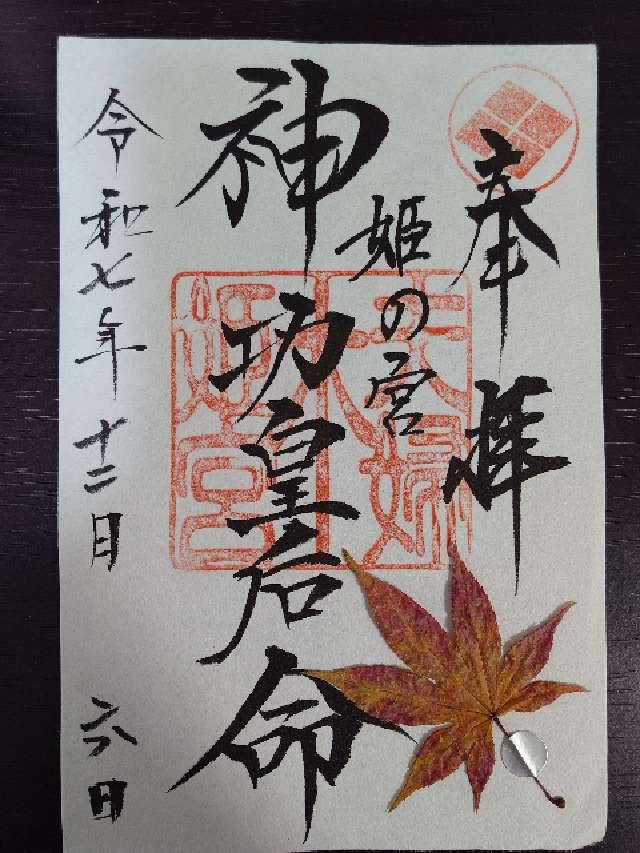 奉拝
姫の宮
神功皇后命
令和七年十二月六日